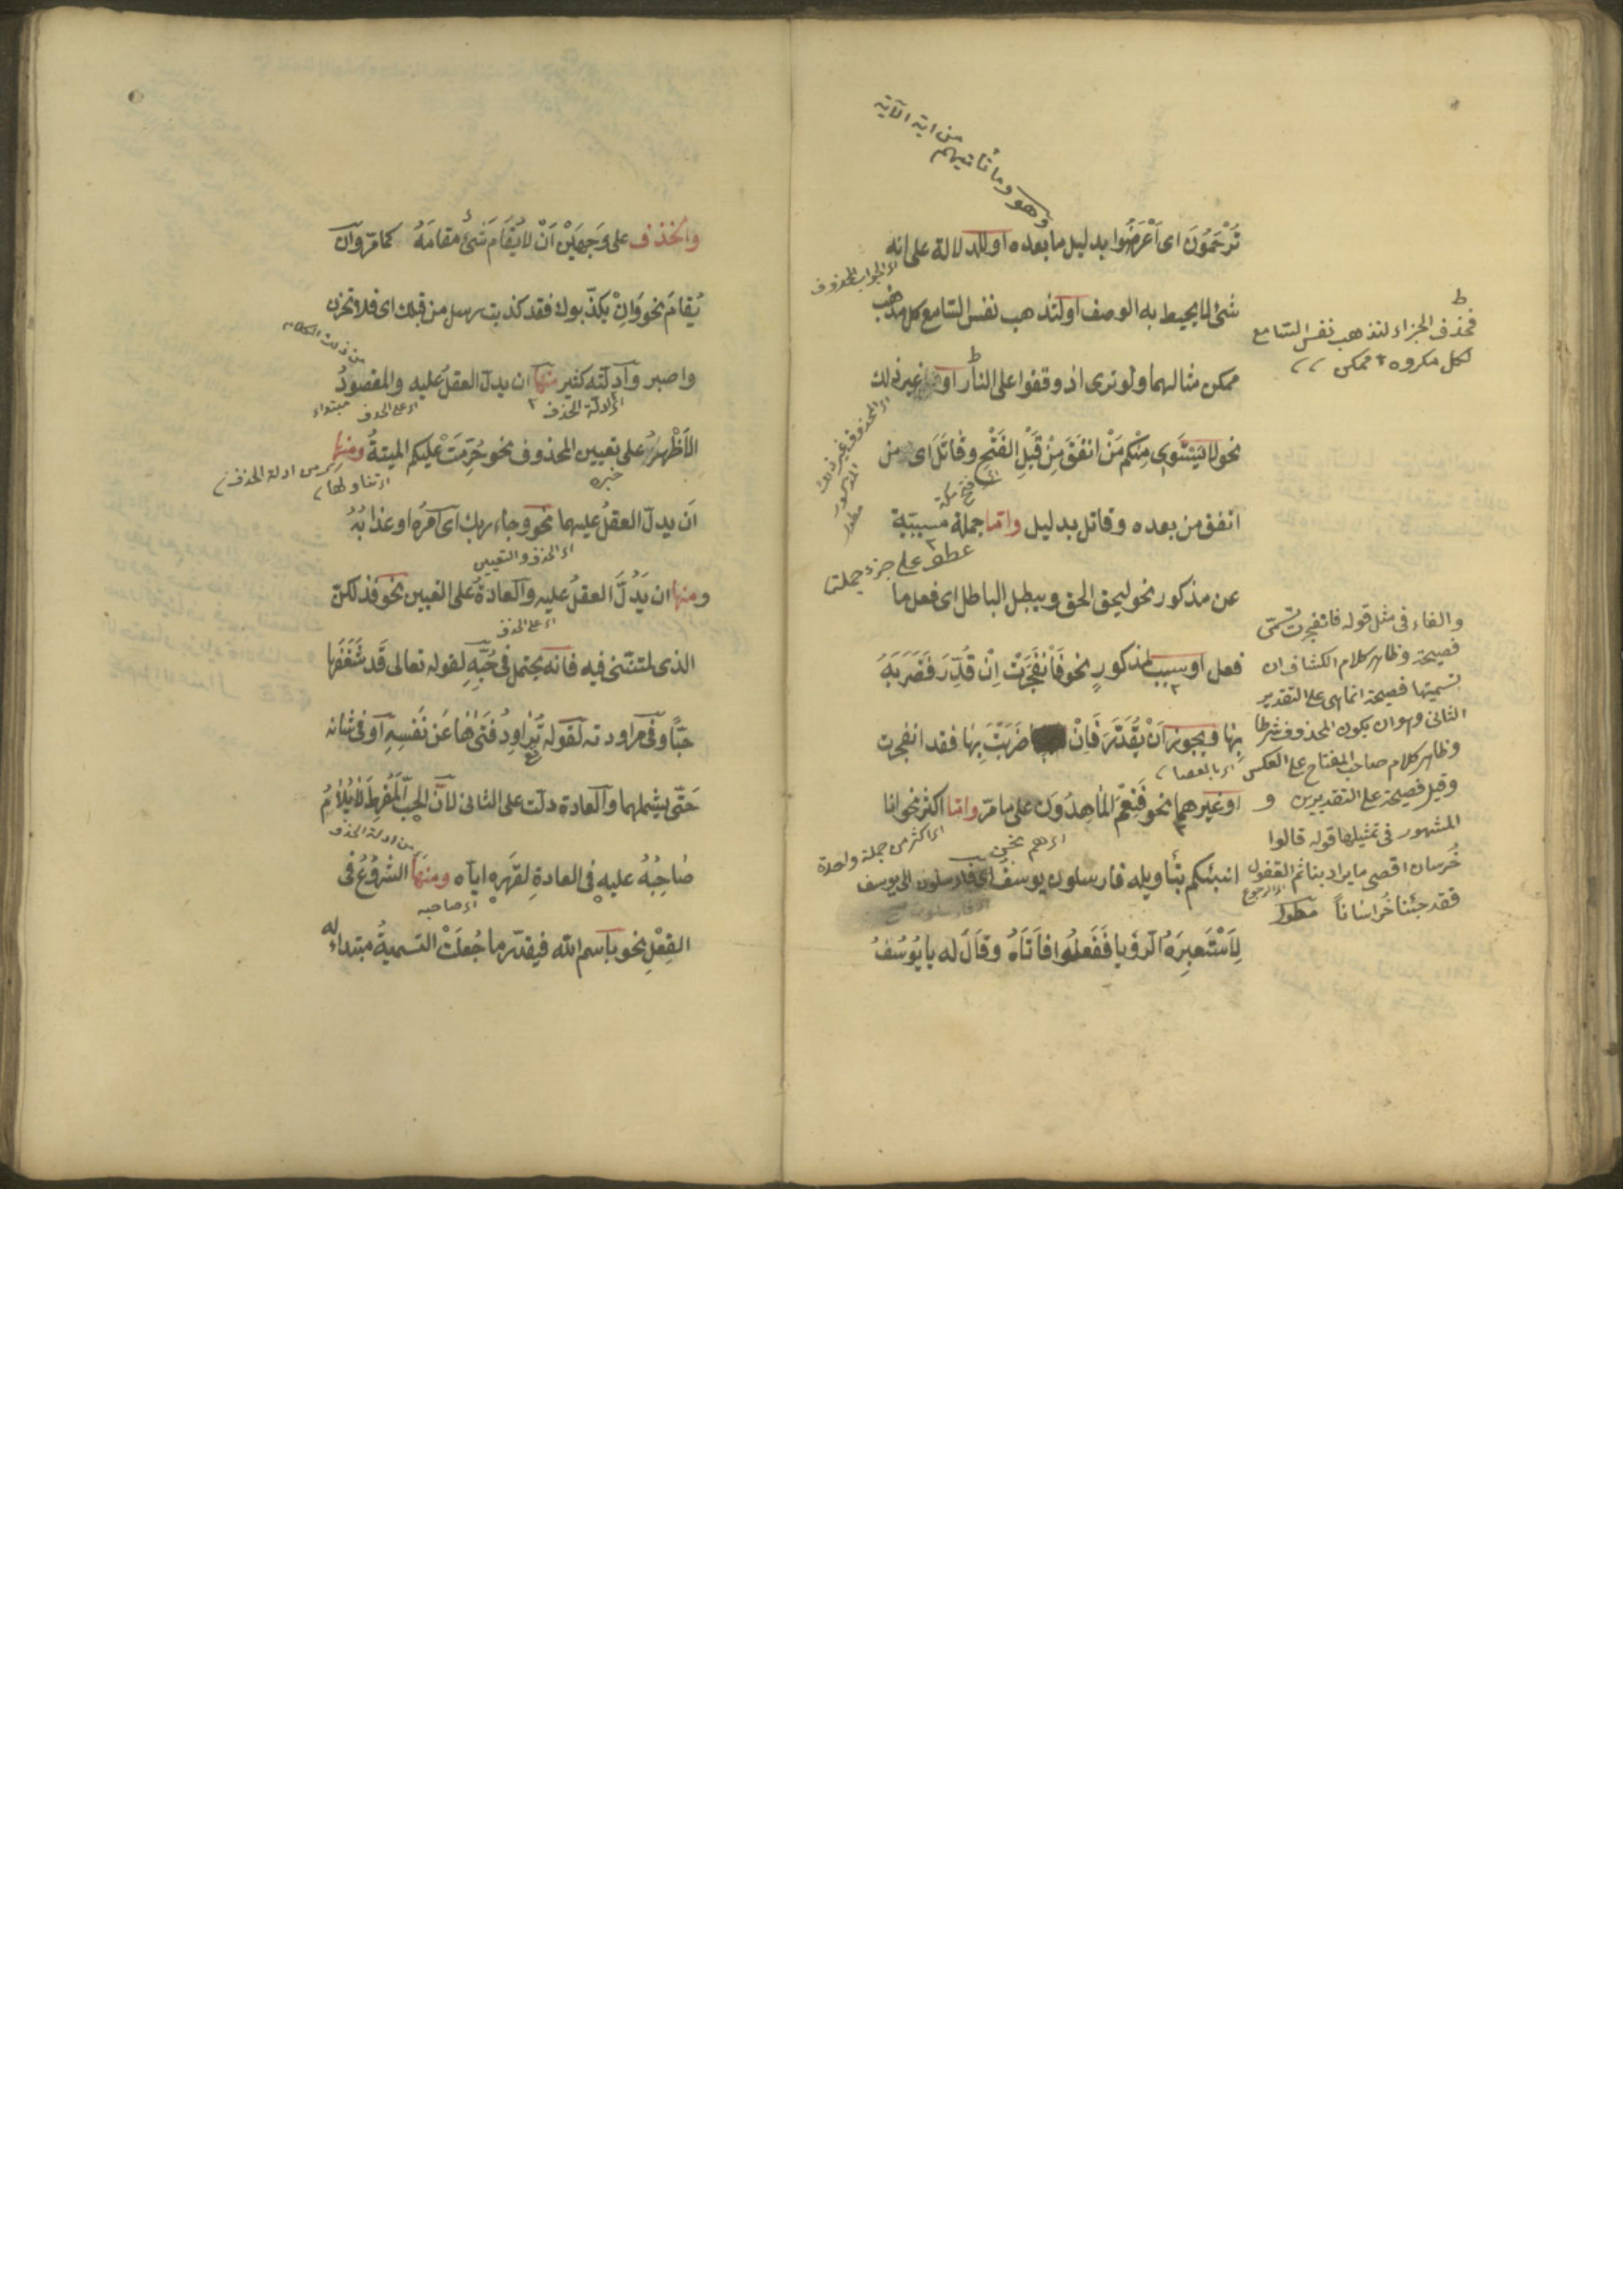 وهو وما تأتيهم
من اية الآية
تُرْحَمُونَ اى اَعْرَضُوا بدليل ما بعده او للدلالة على انه
اى الجواب المحذوف
شئ لا يحيط به الوصف او لتذهب نفس السامع كل مذهب
ممكن مثالهما ولو ترى اذ وقفوا على النار او غير ذلك
نحو لا يَسْتَوِى مِنْكم مَنْ انفَقَ مِنْ قَبْلِ الفَتْحِ وقَاتَلَ اى من
اى فتح مكة
انفق من بعده وقاتل بدليل واما جملة مسببّة
عطف على جزء جملة
عن مذكور نحو ليحق الحق ويبطل الباطل اى فعل ما
فعل او سبب لمذكورٍ نحو فَانْفَجَرَتْ اِنْ قُدِّرَ فَضَرَبَهُ
بِهَا ويجوز اَنْ يُقَدَّرَ فَاِنْ ضَرَبْتَ بِهَا فقد انفجرت
اى بالعصا
او غيرهما نحو فَنِعْمَ المَاهِدُونَ على ما مرّ واما اكثر نحو انا
اى هم نحن
اى اكثر من جملة واحدة
انبئكم بتأويله فارسلون يوسف اى فارسلون الى يوسف
لِاَسْتَعبِرَهُ الرؤيا فَفَعَلُوا فاَتَاهُ وقَالَ له يا يُوسُفُ
فحذف الجزاء لتذهب نفس السامع
لكل مكروه ممكن
اى المحذوف غير ذلك
المذكور
مطول
والفاء فى مثل قوله فانفجرت تسمّى
فصيحة وظاهر كلام الكشاف ان
تسميتها فصيحة انما هى على التقدير
الثانى وهو ان يكون المحذوف شرطا
وظاهر كلام صاحب المفتاح على العكس
وقيل فصيحة على التقديرين و
المشهور فى تمثيلها قوله قالوا
خُرسان اقصى ما يراد بنا ثم القفول
اى الرجوع
فقد جئنا خُراسَاناً مطول
والحذف على وَجهَيْن اَنْ لا يُقَامَ شئ مقامَهُ كما مرّ واَن
يُقامَ نحو وَاِنْ يكذّبوك فقد كذبت رسل من قبلك اى فلا تحزن
من ذلك الكلام
واصبر وادلّته كثير منها ان يدل العقلُ عليه والمقصودُ
اى ادلة الحذف
اى على الحذف
مبتداء
الاَظْهَرُ على تعيين المحذوف نحو حُرِّمَتْ عليكم الميتةُ ومنها
خبره
اى تناولها
اى من ادلة الحذف
اَن يدل العقلُ عليهما نحو وجاء ربك اى اَمرُه او عذابُهُ
اى الحذف والتعيين
ومنها ان يَدُلَّ العقلُ عليه والعادةُ على التعيين نحو فذلكنّ
اى على الحذف
الذى لمتنّنى فيه فانّه يحتمل فى حُبِّهِ لقوله تعالى قَد شَغَفَهَا
حبّا وفى مراودته لقوله تُرَاوِدُ فَتَىٰهَا عَنْ نَفْسِهِ او فى شانه
حَتّى يشملهما والعادة دلّت على الثانى لانّ الحبّ المُفْرِطَ لَا يُلَامُ
صَاحِبُهُ عليهِ فى العادةِ لقَهرِهِ ايّاه ومنها الشُروُعُ فى
اى صاحبه
من ادلة الحذف
الفِعْلِ نحو باسم الله فيقدّر ما جُعلَتْ التسميةُ مبتداءً له